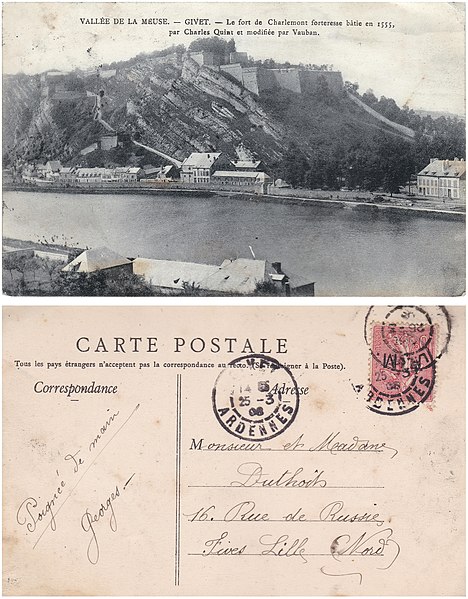 VALLÉE DE LA MEUSE. — GIVET. — Le fort de Charlemont forteresse bâtie en 1555,
par Charles Quint et modifiée par Vauban.
CARTE POSTALE
Tous les pays étrangers n'acceptent pas la correspondance au recto. (Se renseigner à la Poste).
Correspondance
Adresse
Poignée de main
Georges
14
25 -3
06
ARDENNES
25 -3
06
ARDENNES
Monsieur et Madame
Duthoit
16. Rue de Russie
Fives Lille (Nord)